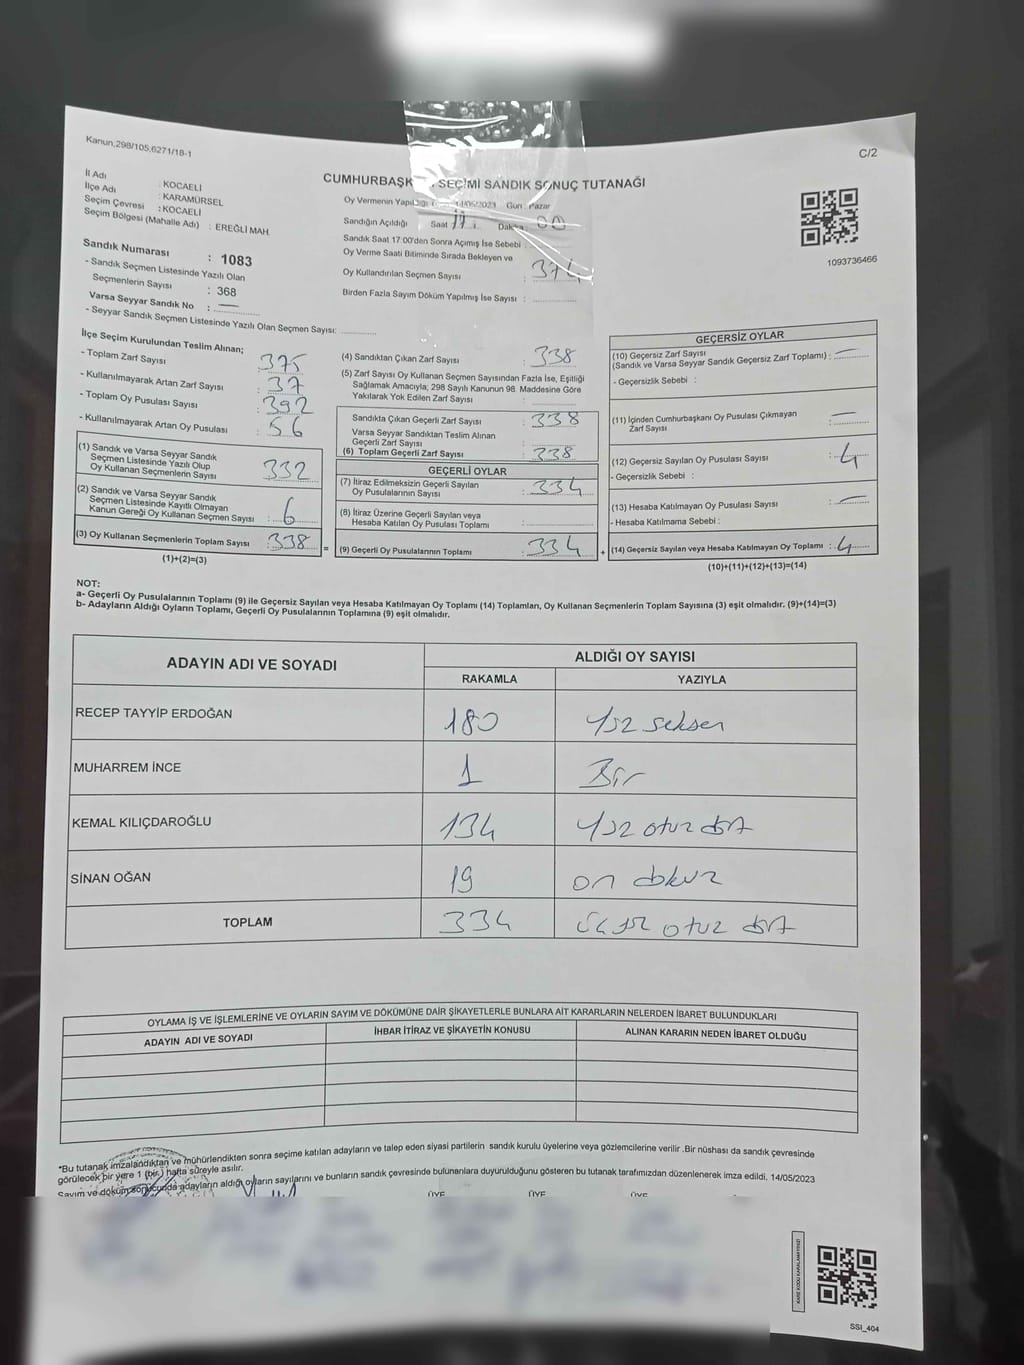 Kanun,298/105,6271/18-1
C/2
CUMHURBAŞK SEÇİMİ SANDIK SONUÇ TUTANAĞI
İl Adı : KOCAELİ
İlçe Adı : KARAMÜRSEL
Seçim Çevresi : KOCAELİ
Seçim Bölgesi (Mahalle Adı) : EREĞLİ MAH.
Sandık Numarası : 1083
- Sandık Seçmen Listesinde Yazılı Olan
Seçmenlerin Sayısı : 368
Varsa Seyyar Sandık No :
- Seyyar Sandık Seçmen Listesinde Yazılı Olan Seçmen Sayısı:
Oy Vermenin Yapıldığı 14/05/2023 Gün : Pazar
Sandığın Açıldığı Saat Dakika : 00
Sandık Saat 17:00'den Sonra Açımış İse Sebebi :
Oy Verme Saati Bitiminde Sırada Bekleyen ve
Oy Kullandırılan Seçmen Sayısı : 374
Birden Fazla Sayım Döküm Yapılmış İse Sayısı :
1093736466
İlçe Seçim Kurulundan Teslim Alınan;
- Toplam Zarf Sayısı : 375
- Kullanılmayarak Artan Zarf Sayısı : 37
- Toplam Oy Pusulası Sayısı : 392
- Kullanılmayarak Artan Oy Pusulası : 56
(1) Sandık ve Varsa Seyyar Sandık
Seçmen Listesinde Yazılı Olup
Oy Kullanan Seçmenlerin Sayısı 332
(2) Sandık ve Varsa Seyyar Sandık
Seçmen Listesinde Kayıtlı Olmayan
Kanun Gereği Oy Kullanan Seçmen Sayısı : 6
(3) Oy Kullanan Seçmenlerin Toplam Sayısı : 338
(1)+(2)=(3)
=
(4) Sandıktan Çıkan Zarf Sayısı : 338
(5) Zarf Sayısı Oy Kullanan Seçmen Sayısından Fazla İse, Eşitliği
Sağlamak Amacıyla; 298 Sayılı Kanunun 98. Maddesine Göre
Yakılarak Yok Edilen Zarf Sayısı :
Sandıkta Çıkan Geçerli Zarf Sayısı : 338
Varsa Seyyar Sandıktan Teslim Alınan
Geçerli Zarf Sayısı :
(6) Toplam Geçerli Zarf Sayısı : 338
GEÇERLİ OYLAR
(7) İtiraz Edilmeksizin Geçerli Sayılan
Oy Pusulalarının Sayısı : 334
(8) İtiraz Üzerine Geçerli Sayılan veya
Hesaba Katılan Oy Pusulası Toplamı :
(9) Geçerli Oy Pusulalarının Toplamı : 334
+
GEÇERSİZ OYLAR
(10) Geçersiz Zarf Sayısı
(Sandık ve Varsa Seyyar Sandık Geçersiz Zarf Toplamı) :
- Geçersizlik Sebebi :
(11) İçinden Cumhurbaşkanı Oy Pusulası Çıkmayan
Zarf Sayısı :
(12) Geçersiz Sayılan Oy Pusulası Sayısı : 4
- Geçersizlik Sebebi :
(13) Hesaba Katılmayan Oy Pusulası Sayısı :
- Hesaba Katılmama Sebebi :
(14) Geçersiz Sayılan veya Hesaba Katılmayan Oy Toplamı : 4
(10)+(11)+(12)+(13)=(14)
NOT:
a- Geçerli Oy Pusulalarının Toplamı (9) ile Geçersiz Sayılan veya Hesaba Katılmayan Oy Toplamı (14) Toplamları, Oy Kullanan Seçmenlerin Toplam Sayısına (3) eşit olmalıdır. (9)+(14)=(3)
b- Adayların Aldığı Oyların Toplamı, Geçerli Oy Pusulalarının Toplamına (9) eşit olmalıdır.
ADAYIN ADI VE SOYADI
ALDIĞI OY SAYISI
RAKAMLA YAZIYLA
RECEP TAYYİP ERDOĞAN 180 Yüz seksen
MUHARREM İNCE 1 Bir
KEMAL KILIÇDAROĞLU 134 Yüz otuz dört
SİNAN OĞAN 19 on dokuz
TOPLAM 334 üçyüz otuz dört
OYLAMA İŞ VE İŞLEMLERİNE VE OYLARIN SAYIM VE DÖKÜMÜNE DAİR ŞİKAYETLERLE BUNLARA AİT KARARLARIN NELERDEN İBARET BULUNDUKLARI
ADAYIN ADI VE SOYADI İHBAR İTİRAZ VE ŞİKAYETİN KONUSU ALINAN KARARIN NEDEN İBARET OLDUĞU
*Bu tutanak imzalandıktan ve mühürlendikten sonra seçime katılan adayların ve talep eden siyasi partilerin sandık kurulu üyelerine veya gözlemcilerine verilir .Bir nüshası da sandık çevresinde
görülecek bir yere 1 (bir ) hafta süreyle asılır.
Sayım ve döküm sonucunda adayların aldığı oyların sayılarını ve bunların sandık çevresinde bulunanlara duyurulduğunu gösteren bu tutanak tarafımızdan düzenlenerek imza edildi. 14/05/2023
ÜYE ÜYE ÜYE
KARE KODU KARALAMAYINIZ!
SSI_404